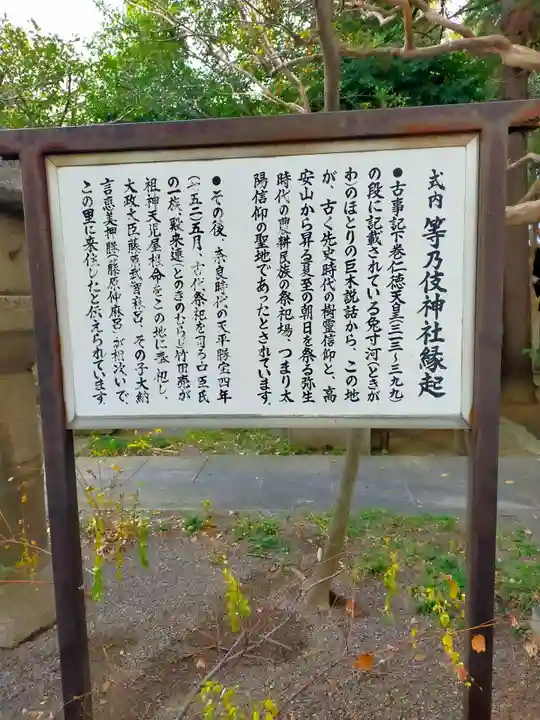 式内 等乃伎神社縁起
●古事記下巻仁徳天皇(三一三〜三九九)
の段に記載されている兎寸河(ときが
わ)のほとりの巨木説話から、この地
が、古く先史時代の樹霊信仰と、高
安山から昇る夏至の朝日を祭る弥生
時代の農耕民族の祭祀場、つまり太
陽信仰の聖地であったとされています。
●その後、奈良時代の天平勝宝四年
(七五二)五月、古代祭祀を司る中臣氏
の一族、殿来連(とのきのむらじ)竹田売が
祖神天児屋根命をこの地に奉祀し、
太政大臣藤原武智麻呂、その子大納
言恵美押勝(藤原仲麻呂)が相次いで
この里に来住したと伝えられています。